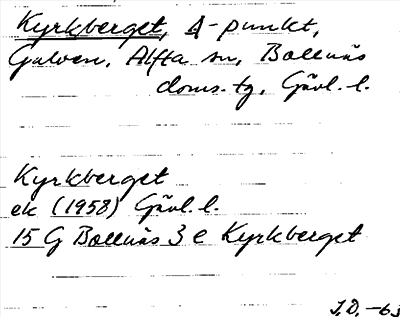 Kyrkberget, Δ-punkt,
Galven, Alfta sn, Bollnäs
doms.tg, Gävl. l.
Kyrkberget
ek (1958) Gävl. l.
15 G Bollnäs 3 e Kyrkberget
J.D. -63